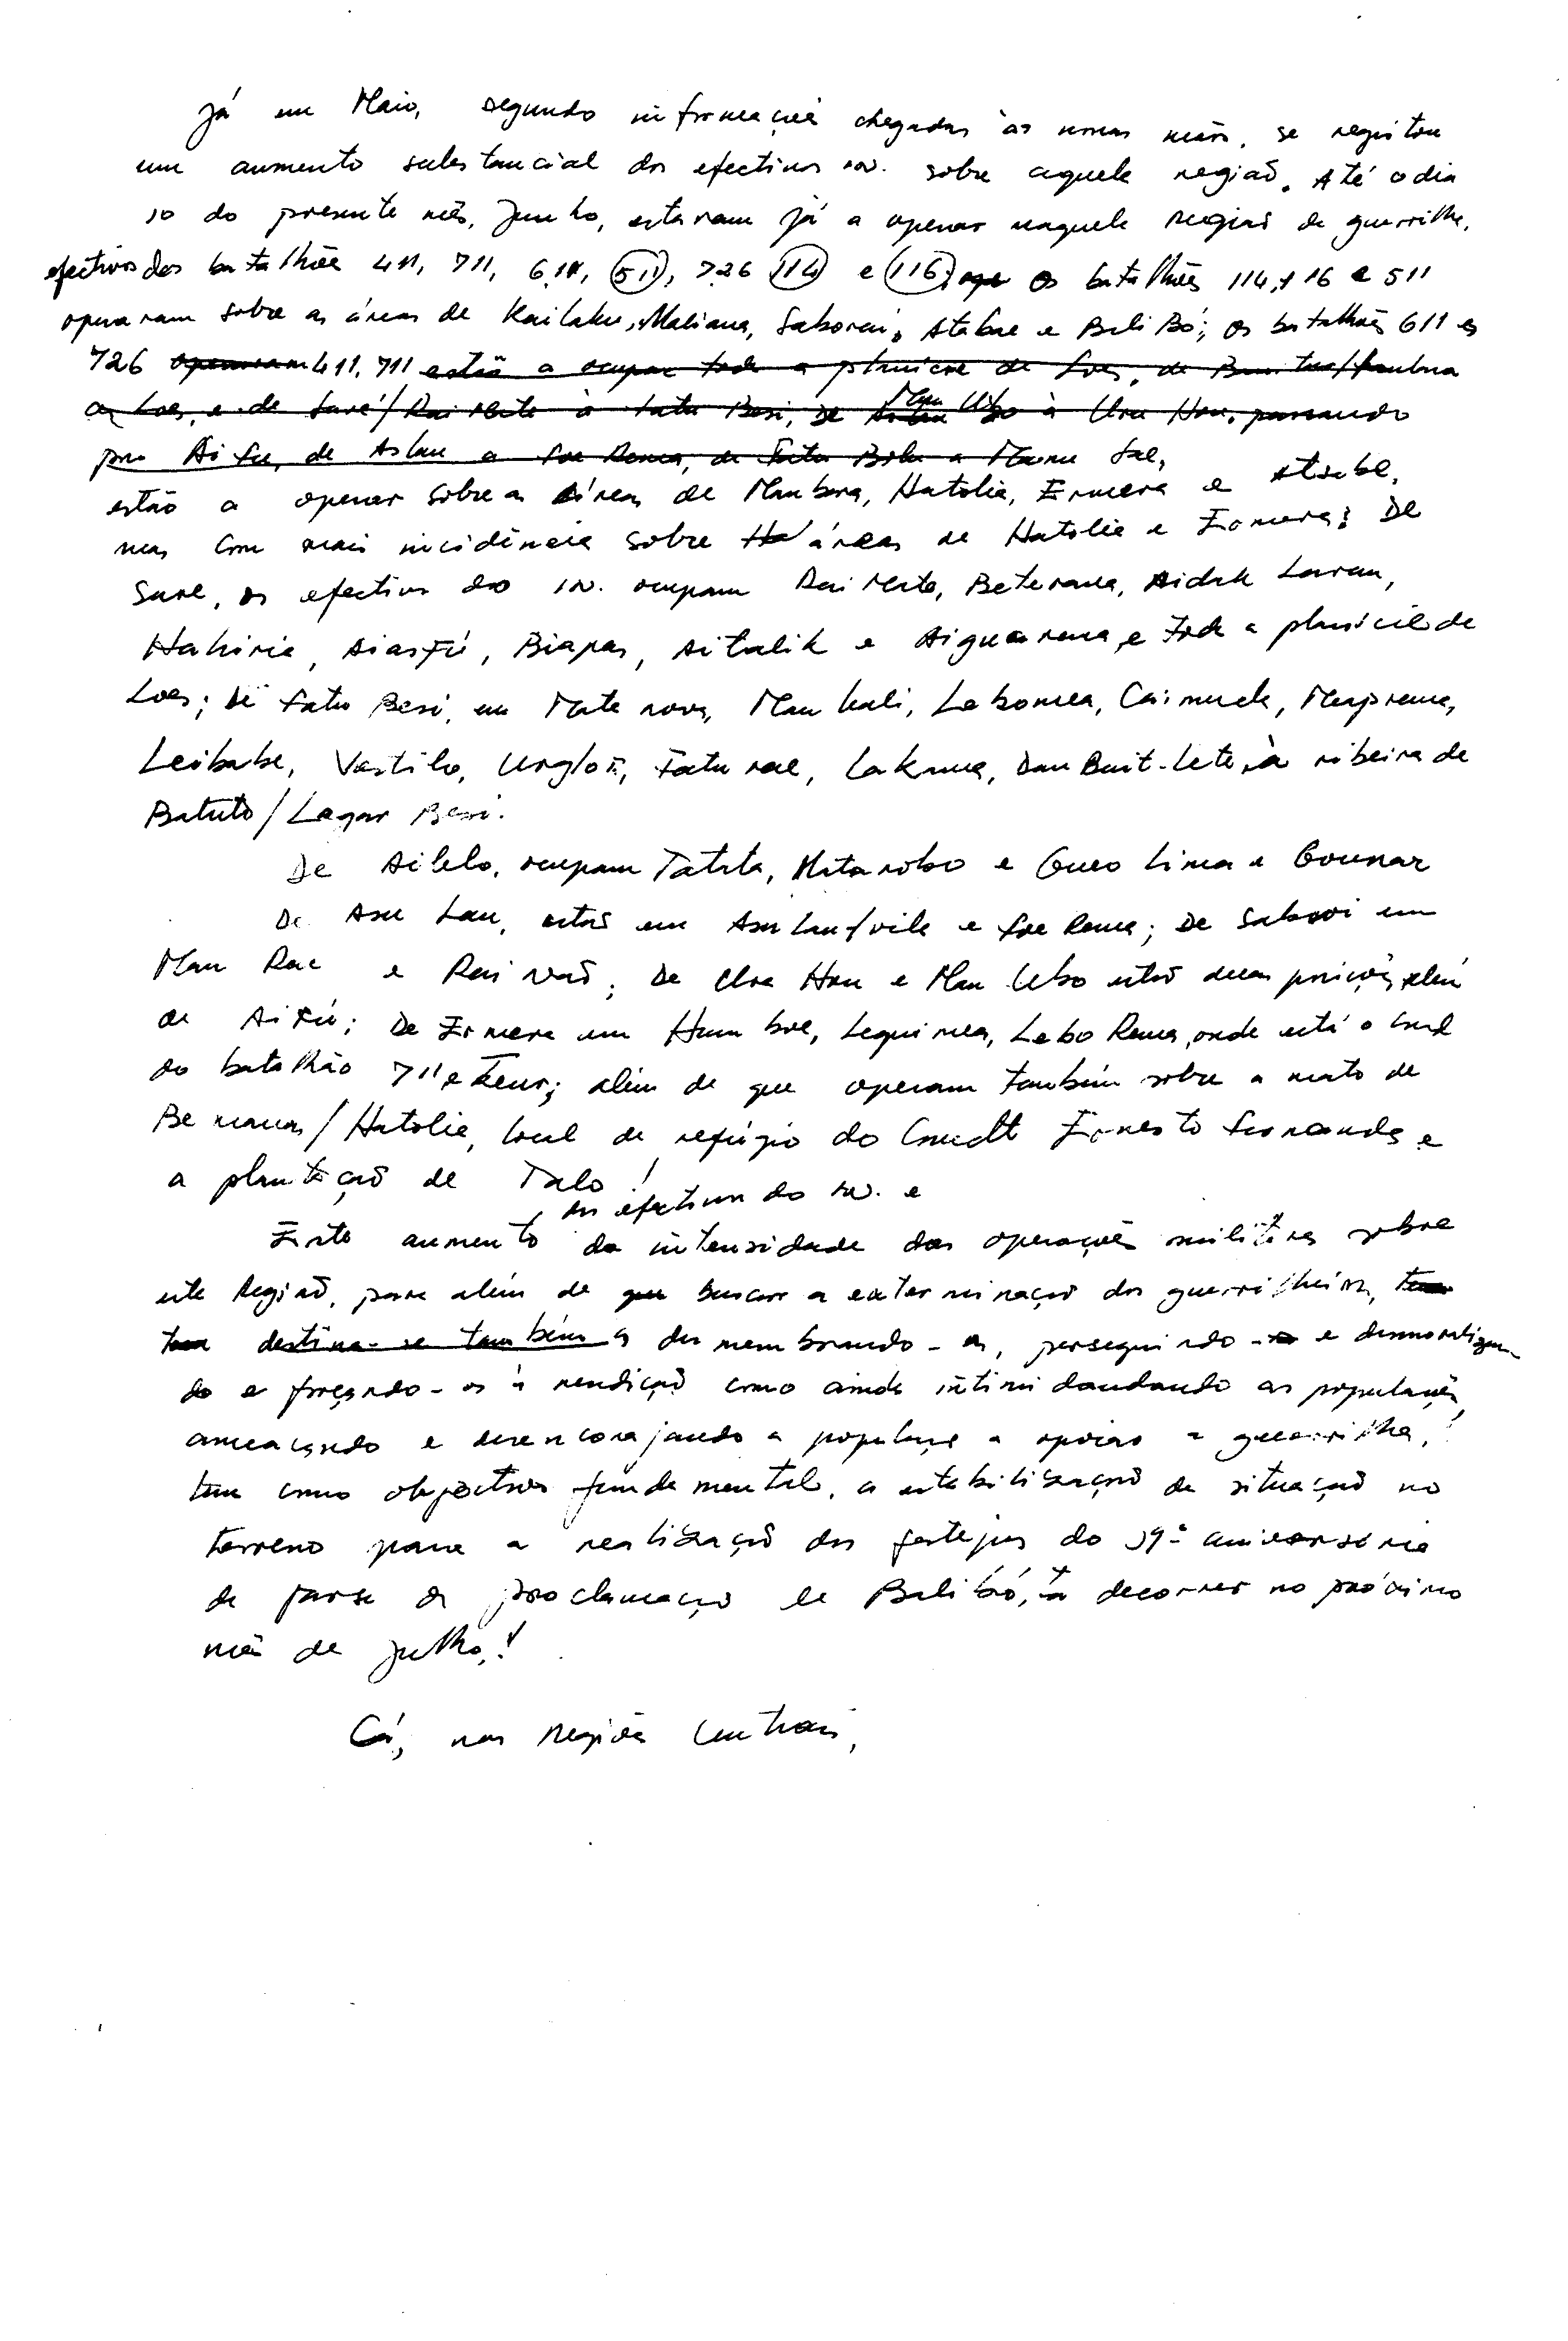 Já em Maio, segundo informações chegadas às nossas mãos, se registou
um aumento substancial dos efectivos in. sobre aquela região. Até o dia
10 do presente mês, Junho, estavam já a operar naquela Região de guerrilha,
efectivos dos batalhões 411, 711, 611, 511, 726 114 e 116; Os batalhões 114, 116 e 511
operavam sobre as áreas de Kailaku, Maliana, Saborai, Atabae e Bali Bó; os batalhões 611 e
726 operavam 411, 711 estão a ocupar toda a planície de Loes, de
a Loes, e de Saré/Rai Mate à Fatu Besi, De Mau Ubo à Ura Hou, passando
por Ai Fu, de Aslau a Foe Rema, de Fatu Bolu a Manu Sae,
estão a operar sobre as áreas de Maubara, Hatolia, Ermera e Atsabe,
mas com mais incidência sobre áreas de Hatolia e Ermera; De
Sare, os efectivos do in. ocupam Rai Mate, Beterama, Aidak Laran,
Hakiria, Aiasfú, Biapas, Aitalik e e toda a planície de
Loes; De Fatu Besi, em Mate nova, Mau kali, Lebomea, Caimuda,
Leibabe, Vastilo, Urglori, Fatu rae, Lakama, Dau Buit-Lete, à ribeira de
Batuto/Lagar Besi.
De Ailelo, ocupam Tatata, Matarobo e Guero Lima e Gounar
De Asu Lau, estão em Asu Lau/vila e Foe Rema; De Saboroi em
Mau Rae e Rai Naõ; De Ura Hou e Mau Ubo estão duas posições, além
de Aifú; De Ermera em Humboe, Lequimea, Lebo Rema, onde está o cmd
do batalhão 711 e além de que operam também sobre a mato de
Be manas/Hatolia, local de refúgio do Cmdt Ernesto Fernandes e
a plantação de Talo!
os efectivos do in. e
Este aumento da intensidade das operações militares sobre
esta Região, para além de que buscar a exterminação dos guerrilheiros,
destina-se também a desmembrando-os, perseguindo-os e desmoralizan-
do e forçando-os à rendição como ainda intimidandando as populações,
ameaçando e desencorajando a população a apoiar a guerrilha,!
tem como objectivos fundamental, a estabilização da situação no
terreno para a realização dos festejos do 19º aniversário
da farsa da proclamação de Balibó, a decorrer no próximo
mês de Julho,!
Cá, nas Regiões Centrais,